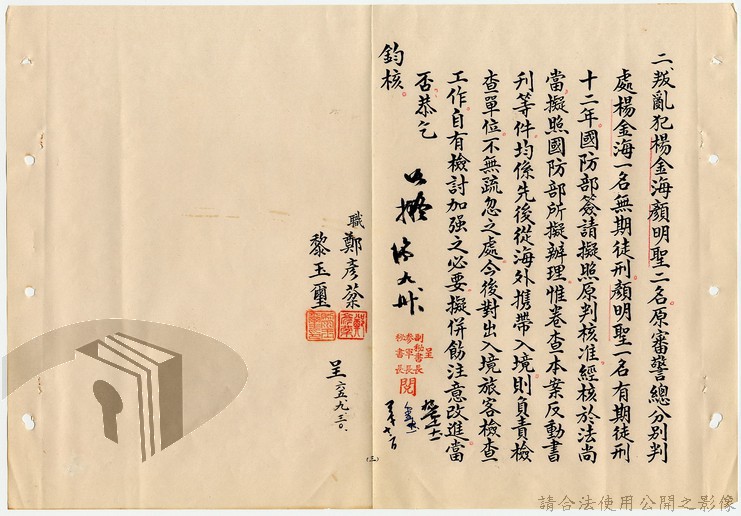 二、叛亂犯楊金海顏明聖二名原審警總分別判
處楊金海一名無期徒刑顏明聖一名有期徒刑
十二年。國防部簽請擬照原判核准經核於法尚
當,擬照國防部所擬辦理。惟卷查本案反動書
刊等件,均係先後從海外携帶入境,則負責檢
查單位,不無疏忽之處。今後對出入境旅客檢查
工作自有檢討加强之必要,擬併飭注意改進。當
否恭乞
鈞核。
職 鄭彥棻
黎玉璽
呈 六五、九、三〇、
呈
副秘書長
參軍長
秘書長
閱
(三)
請合法使用公開之影像